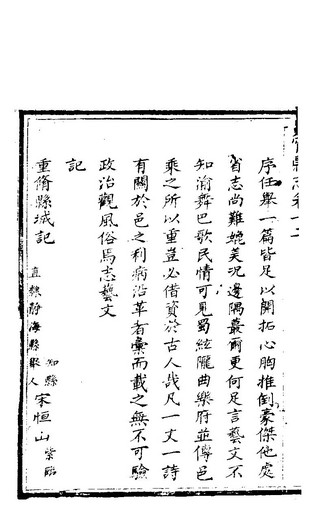 序任舉一篇皆足以開拓心胸推倒豪傑他處
省志尚難媲美況邊隅蕞爾更何足言藝文不
知渝舞巴歌民情可見蜀絃隴曲樂府並傳邑
乘之所以重豈必借資於古人哉凡一文一詩
有關於邑之利病沿革者彙而載之無不可驗
政治觀風俗焉志藝文
記
重脩縣城記
知縣宋恒山
直隸靜海縣舉人